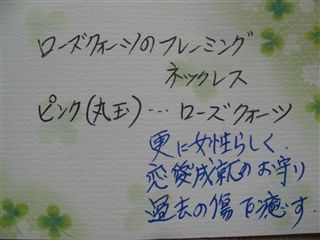 ローズクォーツのフレーミング
ネックレス
ピンク(丸玉)… ローズクォーツ
更に女性らしく.
恋愛成就のお守り
過去の傷を癒す.